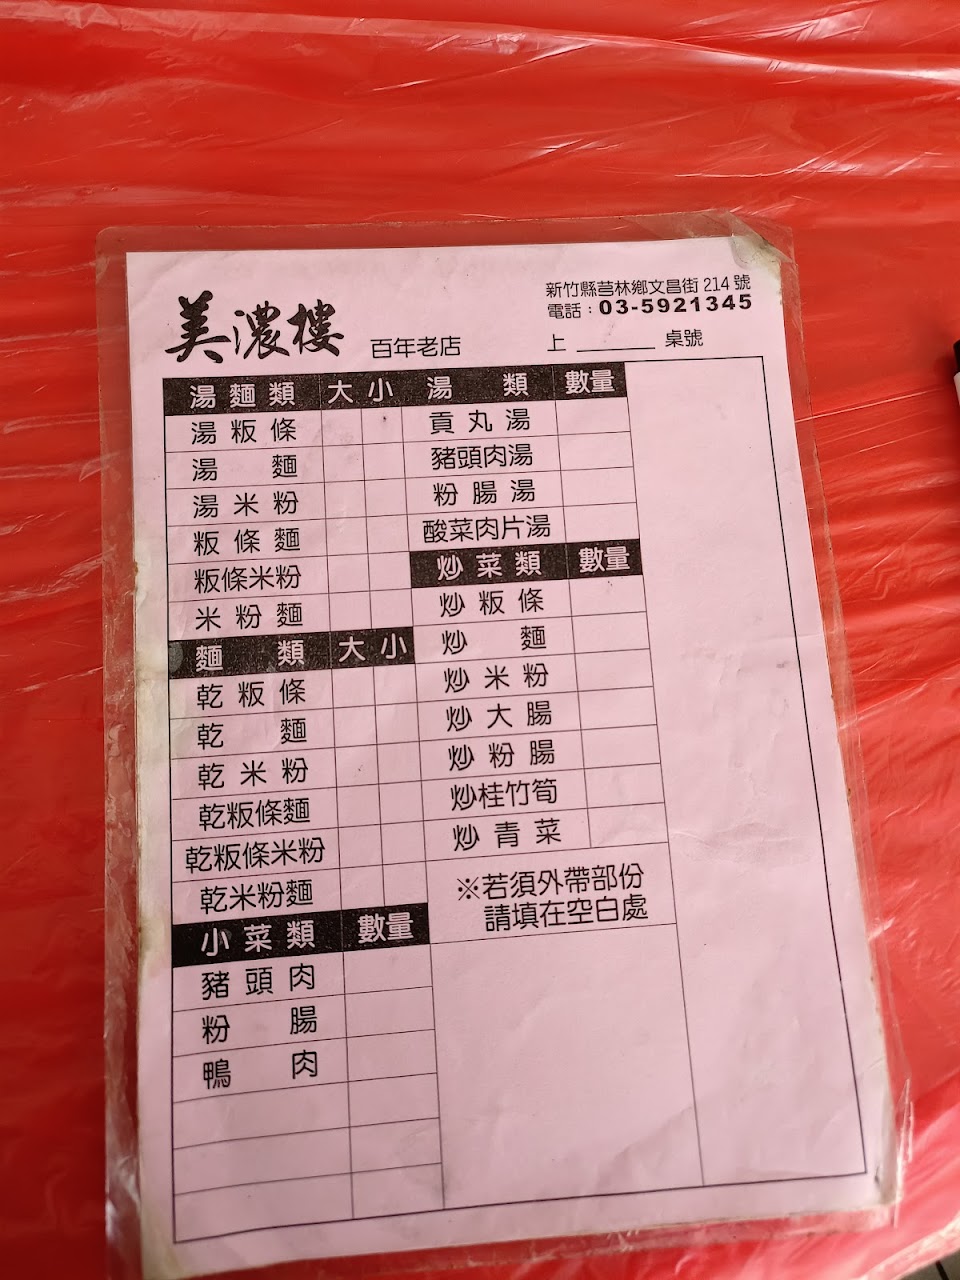 美濃樓 百年老店
新竹縣芎林鄉文昌街 214 號
電話：03-5921345
上 ______ 桌號
湯麵類 大 小
湯粄條
湯麵
湯米粉
粄條麵
粄條米粉
米粉麵
麵類 大 小
乾粄條
乾麵
乾米粉
乾粄條麵
乾粄條米粉
乾米粉麵
小菜類 數量
豬頭肉
粉腸
鴨肉
湯類 數量
貢丸湯
豬頭肉湯
粉腸湯
酸菜肉片湯
炒菜類 數量
炒粄條
炒麵
炒米粉
炒大腸
炒粉腸
炒桂竹筍
炒青菜
※若須外帶部份
請填在空白處